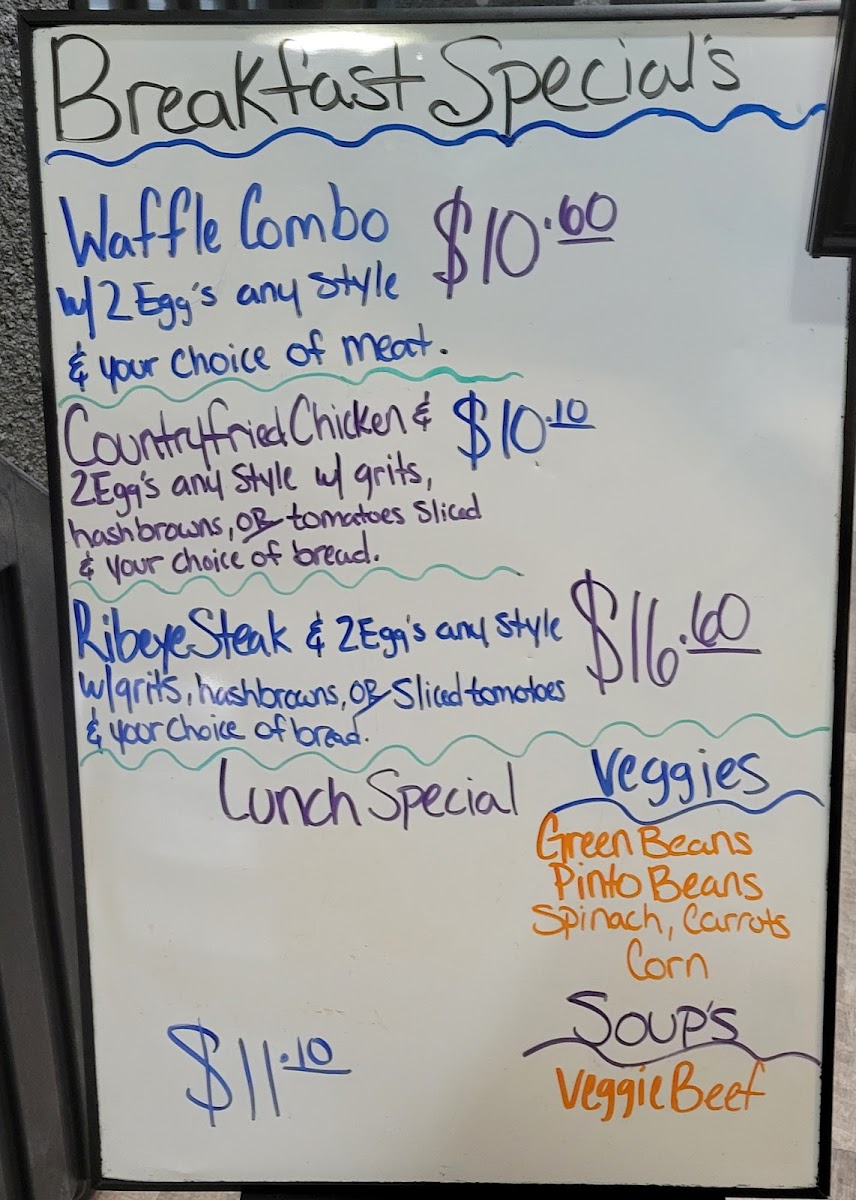 Breakfast Special's
Waffle Combo $10.60
w/ 2 Egg's any style
& your choice of meat.
Country fried Chicken & $10.10
2 Egg's any style w/ grits,
hashbrowns, OR tomatoes sliced
& your choice of bread.
Ribeye Steak & 2 Egg's any style $16.60
w/ grits, hashbrowns, OR sliced tomatoes
& your choice of bread.
Lunch Special
$11.10
Veggies
Green Beans
Pinto Beans
Spinach, Carrots
Corn
Soup's
Veggie Beef